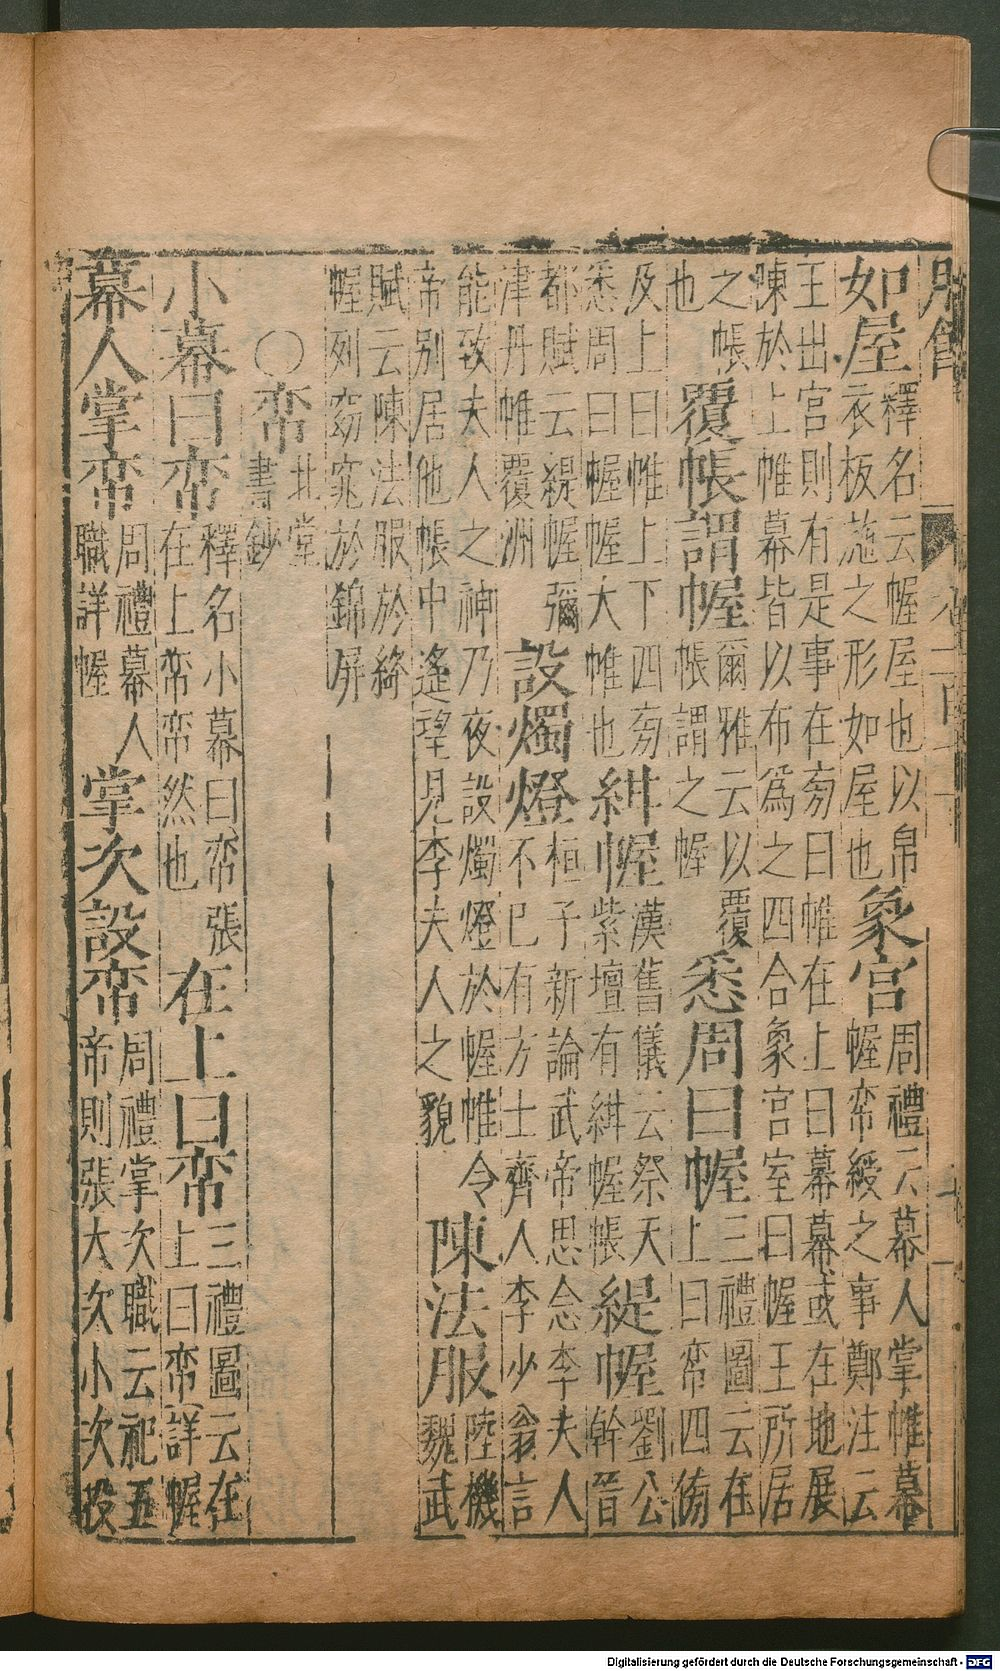 如屋釋名云幄屋也以帛衣板施之形如屋也象宮周禮云幕人掌帷幕幄帟綬之事鄭注云
王出宮則有是事在旁曰帷在上曰幕幕或在地展陳於上帷幕皆以布為之四合象宮室曰幄王所居
之帳也覆帳謂幄爾雅云以覆帳謂之幄悉周曰幄三禮圖云在上曰帟四旁
及上曰帷上下四旁悉周曰幄幄大帷也紺幄漢舊儀云祭天紫壇有紺幄帳緹幄劉公幹晉
都賦云緹幄彌津丹帷覆洲設燭燈桓子新論武帝思念李夫人不已有方士齊人李少翁言
能致夫人之神乃夜設燭燈於幄帷令帝別居他帳中遙望見李夫人之貌陳法服陸機魏武
賦云陳法服於綺幄列窈窕於錦屏
○帟北堂書鈔
小幕曰帟釋名小幕曰帟張在上帟帟然也在上曰帟三禮圖云在上曰帟詳幄
幕人掌帟周禮幕人職詳幄掌次設帟周禮掌次職云祀五帝則張大次小次設
Digitalisierung gefördert durch die Deutsche Forschungsgemeinschaft - DFG